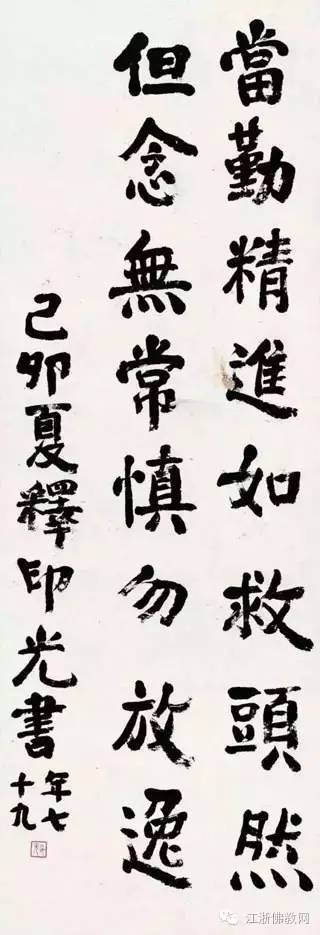 當勤精進如救頭然
但念無常慎勿放逸
己卯夏釋印光書
年七
十九
江浙佛教网